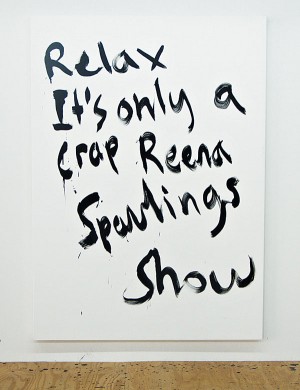 Relax
It's only a
crap Reena
Spaulings
Show